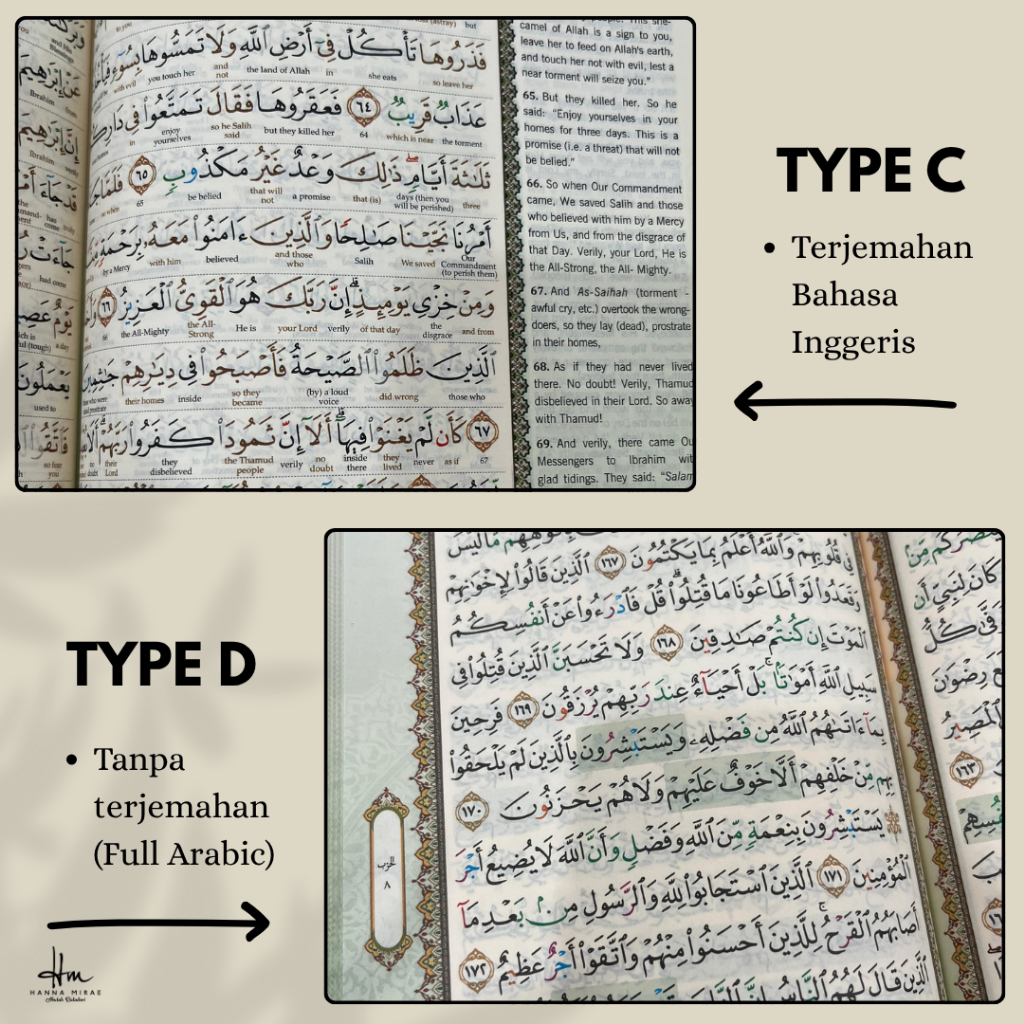 فَذَرُوهَا تَأْكُلْ فِىٓ أَرْضِ ٱللَّهِ وَلَا تَمَسُّوهَا بِسُوٓءٍ
so leave her she eats in the land of Allah and not you touch her with evil
عَذَابٌ قَرِيبٌ ٦٤ فَعَقَرُوهَا فَقَالَ تَمَتَّعُوا۟ فِى
the torment which is near 64 but they killed her so he Salih said enjoy yourselves in
ثَلَٰثَةَ أَيَّامٍ ذَٰلِكَ وَعْدٌ غَيْرُ مَكْذُوبٍ ٦٥ فَلَمَّا
three days (then you will be perished) that (is) a promise that will not be belied 65 so when
أَمْرُنَا نَجَّيْنَا صَٰلِحًا وَٱلَّذِينَ ءَامَنُوا۟ مَعَهُۥ بِرَحْمَةٍ
Our Commandment (to perish them) We saved Salih and those who believed with him by a Mercy
وَمِنْ خِزْىِ يَوْمِئِذٍ إِنَّ رَبَّكَ هُوَ ٱلْقَوِىُّ ٱلْعَزِيزُ ٦٦
and from the disgrace of that day verily your Lord He is the All-Strong the All-Mighty 66
ٱلَّذِينَ ظَلَمُوا۟ ٱلصَّيْحَةُ فَأَصْبَحُوا۟ فِى دِيَٰرِهِمْ جَٰثِمِينَ
those who did wrong (by) a loud voice so they became inside their homes
٦٧ كَأَن لَّمْ يَغْنَوْا۟ فِيهَآ أَلَآ إِنَّ ثَمُودَا۟ كَفَرُوا۟ رَبَّهُمْ
67 as if never they lived inside there no doubt verily the Thamud people they disbelieved their Lord
camel of Allah is a sign to you,
leave her to feed on Allah's earth,
and touch her not with evil, lest a
near torment will seize you."
65. But they killed her. So he
said: "Enjoy yourselves in your
homes for three days. This is a
promise (i.e. a threat) that will not
be belied."
66. So when Our Commandment
came, We saved Salih and those
who believed with him by a Mercy
from Us, and from the disgrace of
that Day. Verily, your Lord, He is
the All-Strong, the All- Mighty.
67. And As-Saihah (torment -
awful cry, etc.) overtook the wrong-
doers, so they lay (dead), prostrate
in their homes,
68. As if they had never lived
there. No doubt! Verily, Thamud
disbelieved in their Lord. So away
with Thamud!
69. And verily, there came Ou
Messengers to Ibrahim wit
glad tidings. They said: "Salam
TYPE C
• Terjemahan
Bahasa
Inggeris
TYPE D
• Tanpa
terjemahan
(Full Arabic)
Hm
HANNA MIRAE
فِى قُلُوبِهِمْ وَٱللَّهُ أَعْلَمُ بِمَا يَكْتُمُونَ ١٦٧ ٱلَّذِينَ قَالُوا۟ لِإِخْوَٰنِهِمْ
وَقَعَدُوا۟ لَوْ أَطَاعُونَا مَا قُتِلُوا۟ قُلْ فَٱدْرَءُوا۟ عَنْ أَنفُسِكُمُ
ٱلْمَوْتَ إِن كُنتُمْ صَٰدِقِينَ ١٦٨ وَلَا تَحْسَبَنَّ ٱلَّذِينَ قُتِلُوا۟ فِى
سَبِيلِ ٱللَّهِ أَمْوَٰتًۢا بَلْ أَحْيَآءٌ عِندَ رَبِّهِمْ يُرْزَقُونَ ١٦٩ فَرِحِينَ
بِمَآ ءَاتَىٰهُمُ ٱللَّهُ مِن فَضْلِهِۦ وَيَسْتَبْشِرُونَ بِٱلَّذِينَ لَمْ يَلْحَقُوا۟
بِهِم مِّنْ خَلْفِهِمْ أَلَّا خَوْفٌ عَلَيْهِمْ وَلَا هُمْ يَحْزَنُونَ ١٧٠
يَسْتَبْشِرُونَ بِنِعْمَةٍ مِّنَ ٱللَّهِ وَفَضْلٍ وَأَنَّ ٱللَّهَ لَا يُضِيعُ أَجْرَ
ٱلْمُؤْمِنِينَ ١٧١ ٱلَّذِينَ ٱسْتَجَابُوا۟ لِلَّهِ وَٱلرَّسُولِ مِنۢ بَعْدِ مَآ
أَصَابَهُمُ ٱلْقَرْحُ لِلَّذِينَ أَحْسَنُوا۟ مِنْهُمْ وَٱتَّقَوْا۟ أَجْرٌ عَظِيمٌ ١٧٢
ٱلَّذِينَ قَالَ لَهُمُ ٱلنَّاسُ إِنَّ ٱلنَّاسَ
الحزب
٨